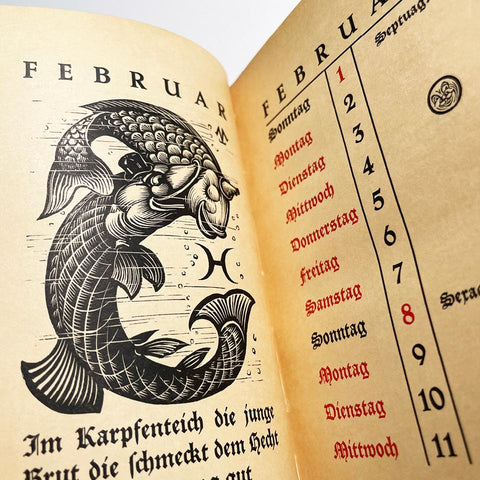 FEBRUAR
Im Karpfenteich die junge
Brut die schmeckt dem Hecht
gut
FEBRUA
Sonntag 1 Septuag
Montag 2
Dienstag 3
Mittwoch 4
Donnerstag 5
Freitag 6
Samstag 7
Sonntag 8 Sexa
Montag 9
Dienstag 10
Mittwoch 11